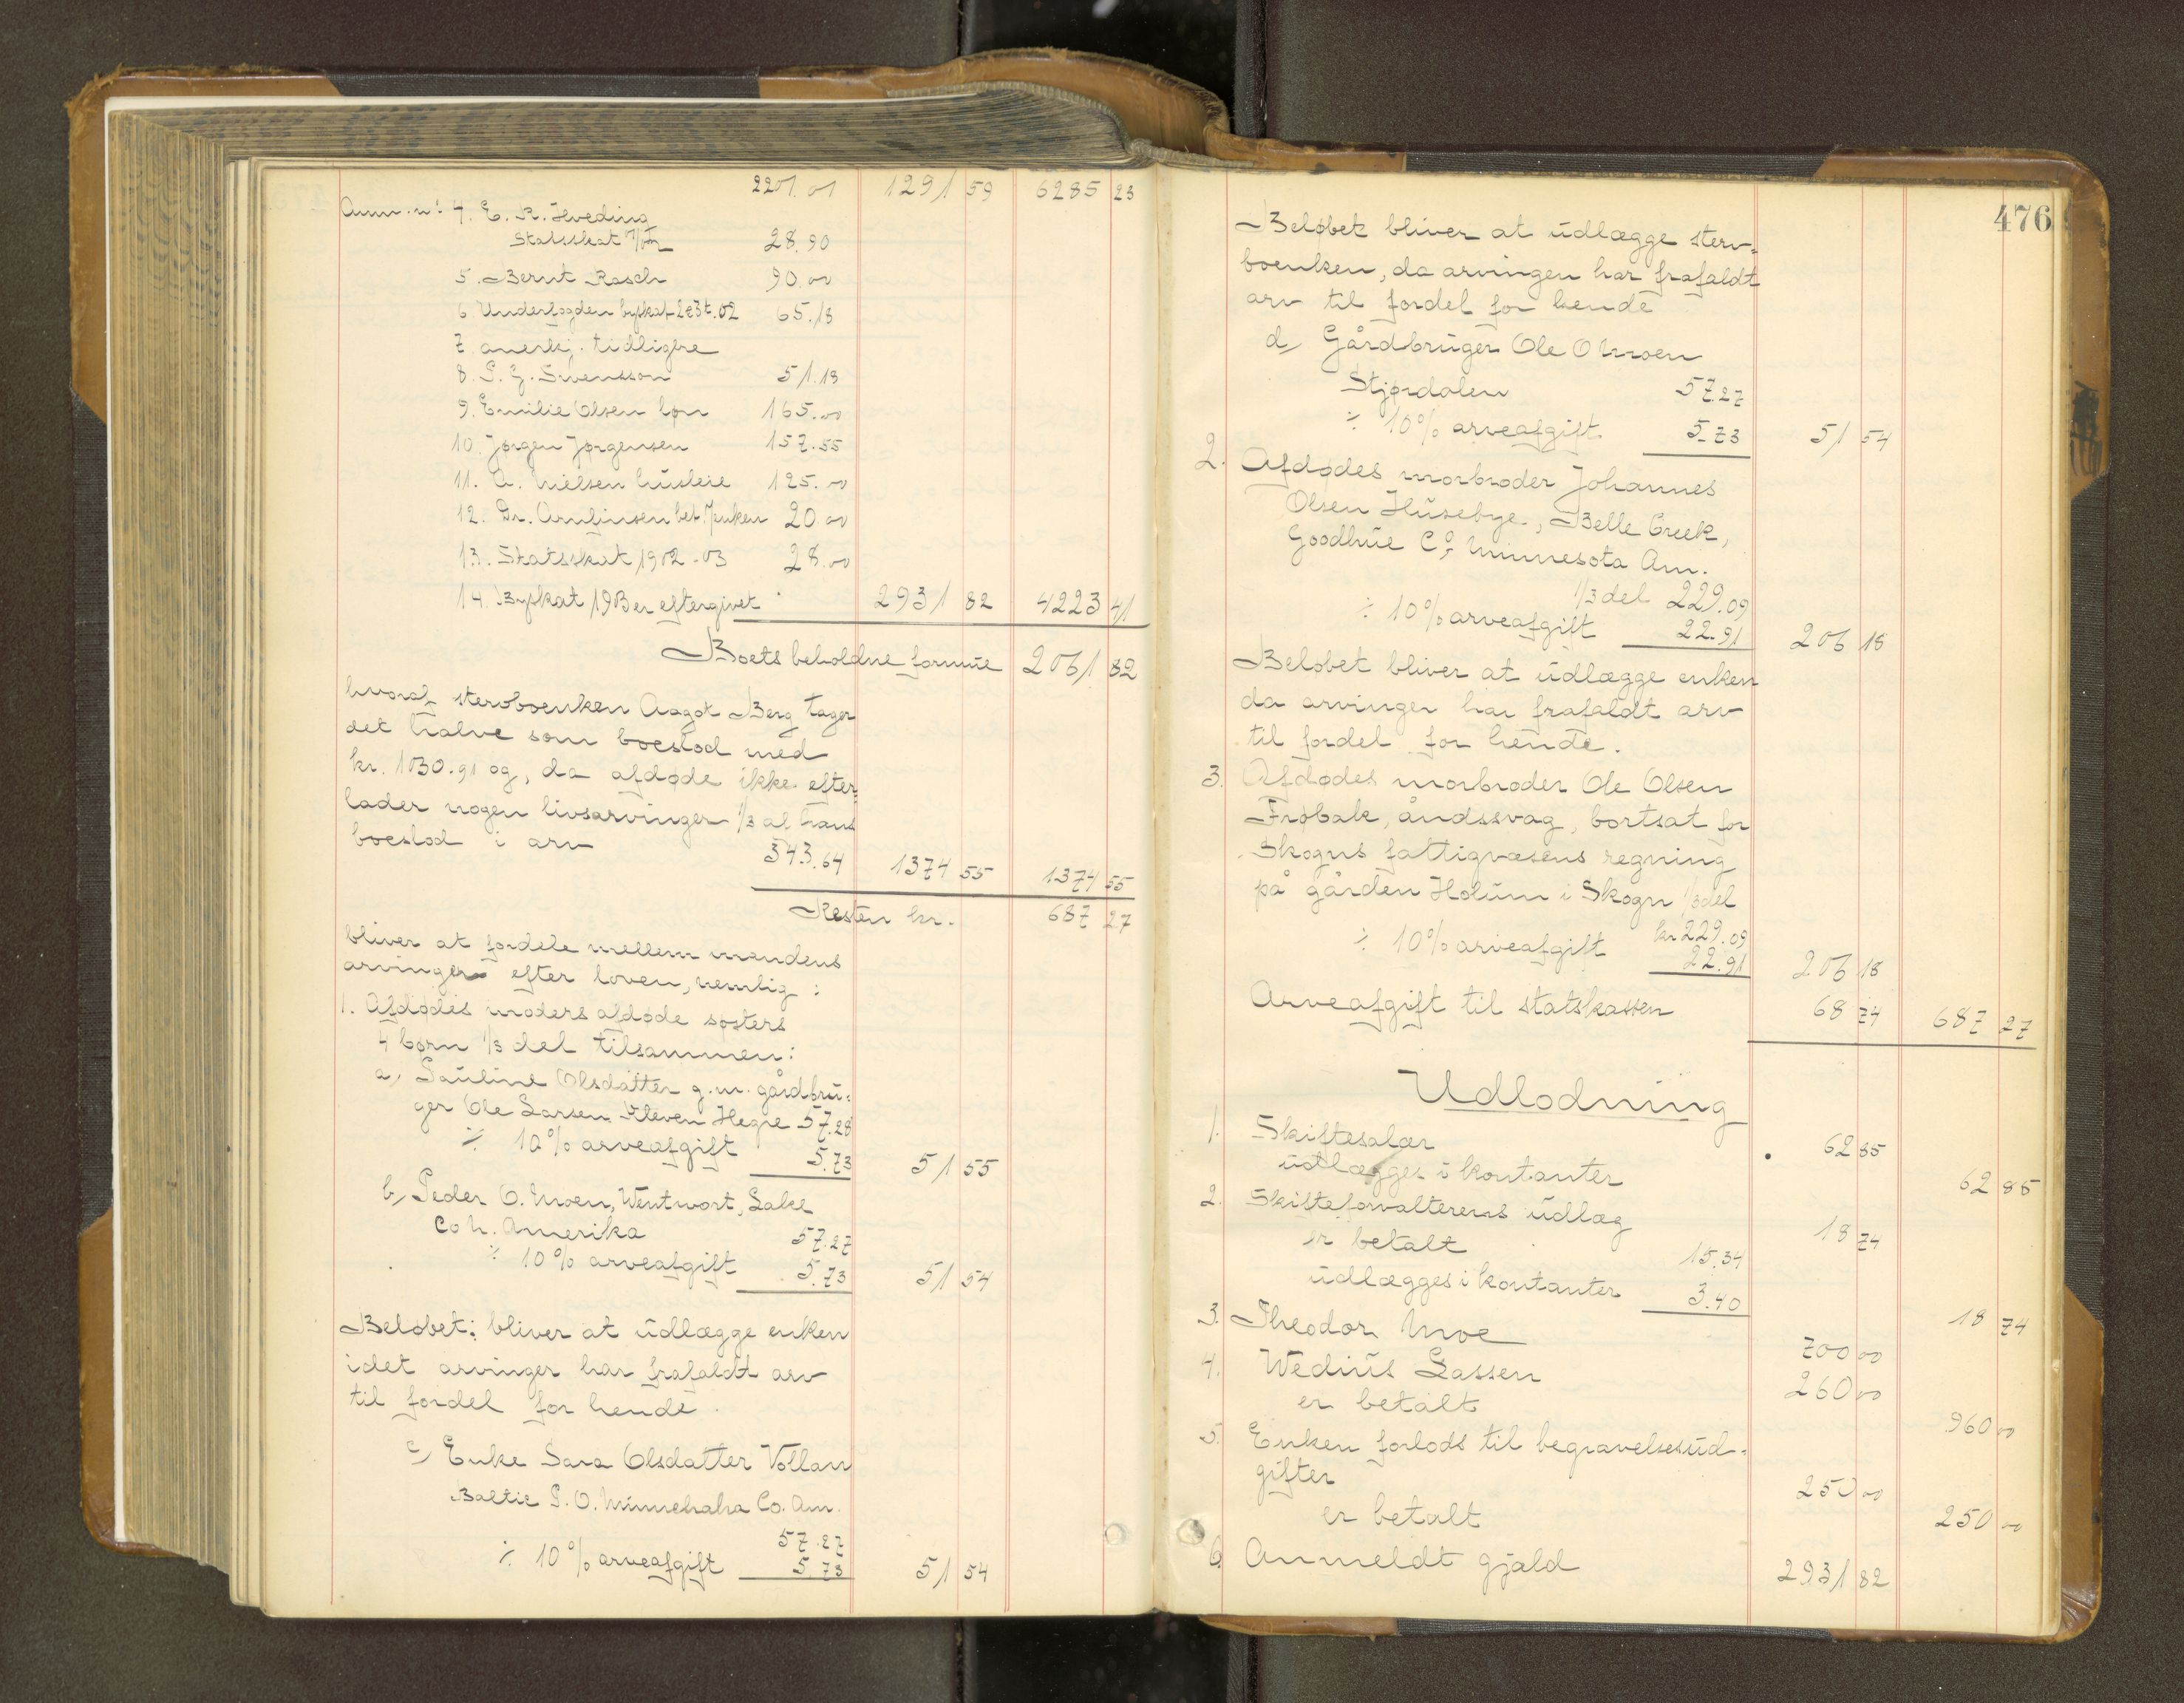 2201.01 1291 59 6285 23
Anm. nr. 4. E. R. Hveding
Statsskat 28.90
5. Bernt Rasch 90.00
6 Underfogden byskat 2 & 3 t. 02 65.18
7 anerkj. tidligere
8. P. G. Svensson 51.18
9. Emilie Olsen løn 165.00
10. Jørgen Jørgensen 157.55
11. A. Nielsen husleie 125.00
12. Gr. Arnfinsen bet. 20.00
13. Statsskat 1902-03 28.00
14. Byskat 1903 er eftergivet 2931 82 4223 41
Boets beholdne formue 2061 82
hvoraf stervboenken Aagot Berg tager
det halve som boeslod med
kr. 1030.91 og, da afdøde ikke efter=
lader nogen livsarvinger 1/3 af hans
boeslod i arv 343.64 1374 55 1374 55
Resten kr. 687 27
bliver at fordele mellem mandens
arvinger efter loven, nemlig:
1. Afdødes moders afdøde søsters
4 børn 1/3 del tilsammen:
a, Pauline Olsdatter g. m. gårdbru=
ger Ole Larsen Kleven Hegre 57.28
÷ 10% arveafgift 5.73 51 55
b, Peder O. Moen, Wentwort, Lake
Co. N. Amerika 57.27
÷ 10% arveafgift 5.73 51 54
Beløbet: bliver at udlægge enken
idet arvinger har frafaldt arv
til fordel for hende.
c, Enke Sara Olsdatter Vollan
Baltic P. O. Minnehaha Co. Am.
57.27
÷ 10% arveafgift 5.73 51 54
476
Beløbet bliver at udlægge sterv=
boenken, da arvingen har frafaldt
arv til fordel for hende
d, Gårdbruger Ole O Moen
Stjørdalen 57.27
÷ 10% arveafgift 5.73 51 54
2. Afdødes morbroder Johannes
Olsen Husebye, Belle Creek,
Goodhue Co, Minnesota Am.
1/3 del 229.09
÷ 10% arveafgift 22.91 206 18
Beløbet bliver at udlægge enken
da arvinger har frafaldt arv
til fordel for hende.
3. Afdødes morbroder Ole Olsen
Frøbak, åndssvag, bortsat for
Skogns fattigvæsens regning
på gården Holum i Skogn 1/3 del
kr 229.09
÷ 10% arveafgift 22.91 206 18
Arveafgift til statskassen 68 74 687 27
Udlodning
1. Skiftesalær 62 85
udlægges i kontanter 62 85
2. Skifteforvalterens udlæg 18 74
er betalt 15.34
udlægges i kontanter 3.40 18 74
3. Theodor Moe 700 00
4. Wedius Lassen 260 00
er betalt 960 00
5. Enken forlods til begravelsesud=
gifter 250 00
er betalt 250 00
6. Anmeldt gjæld 2931 82